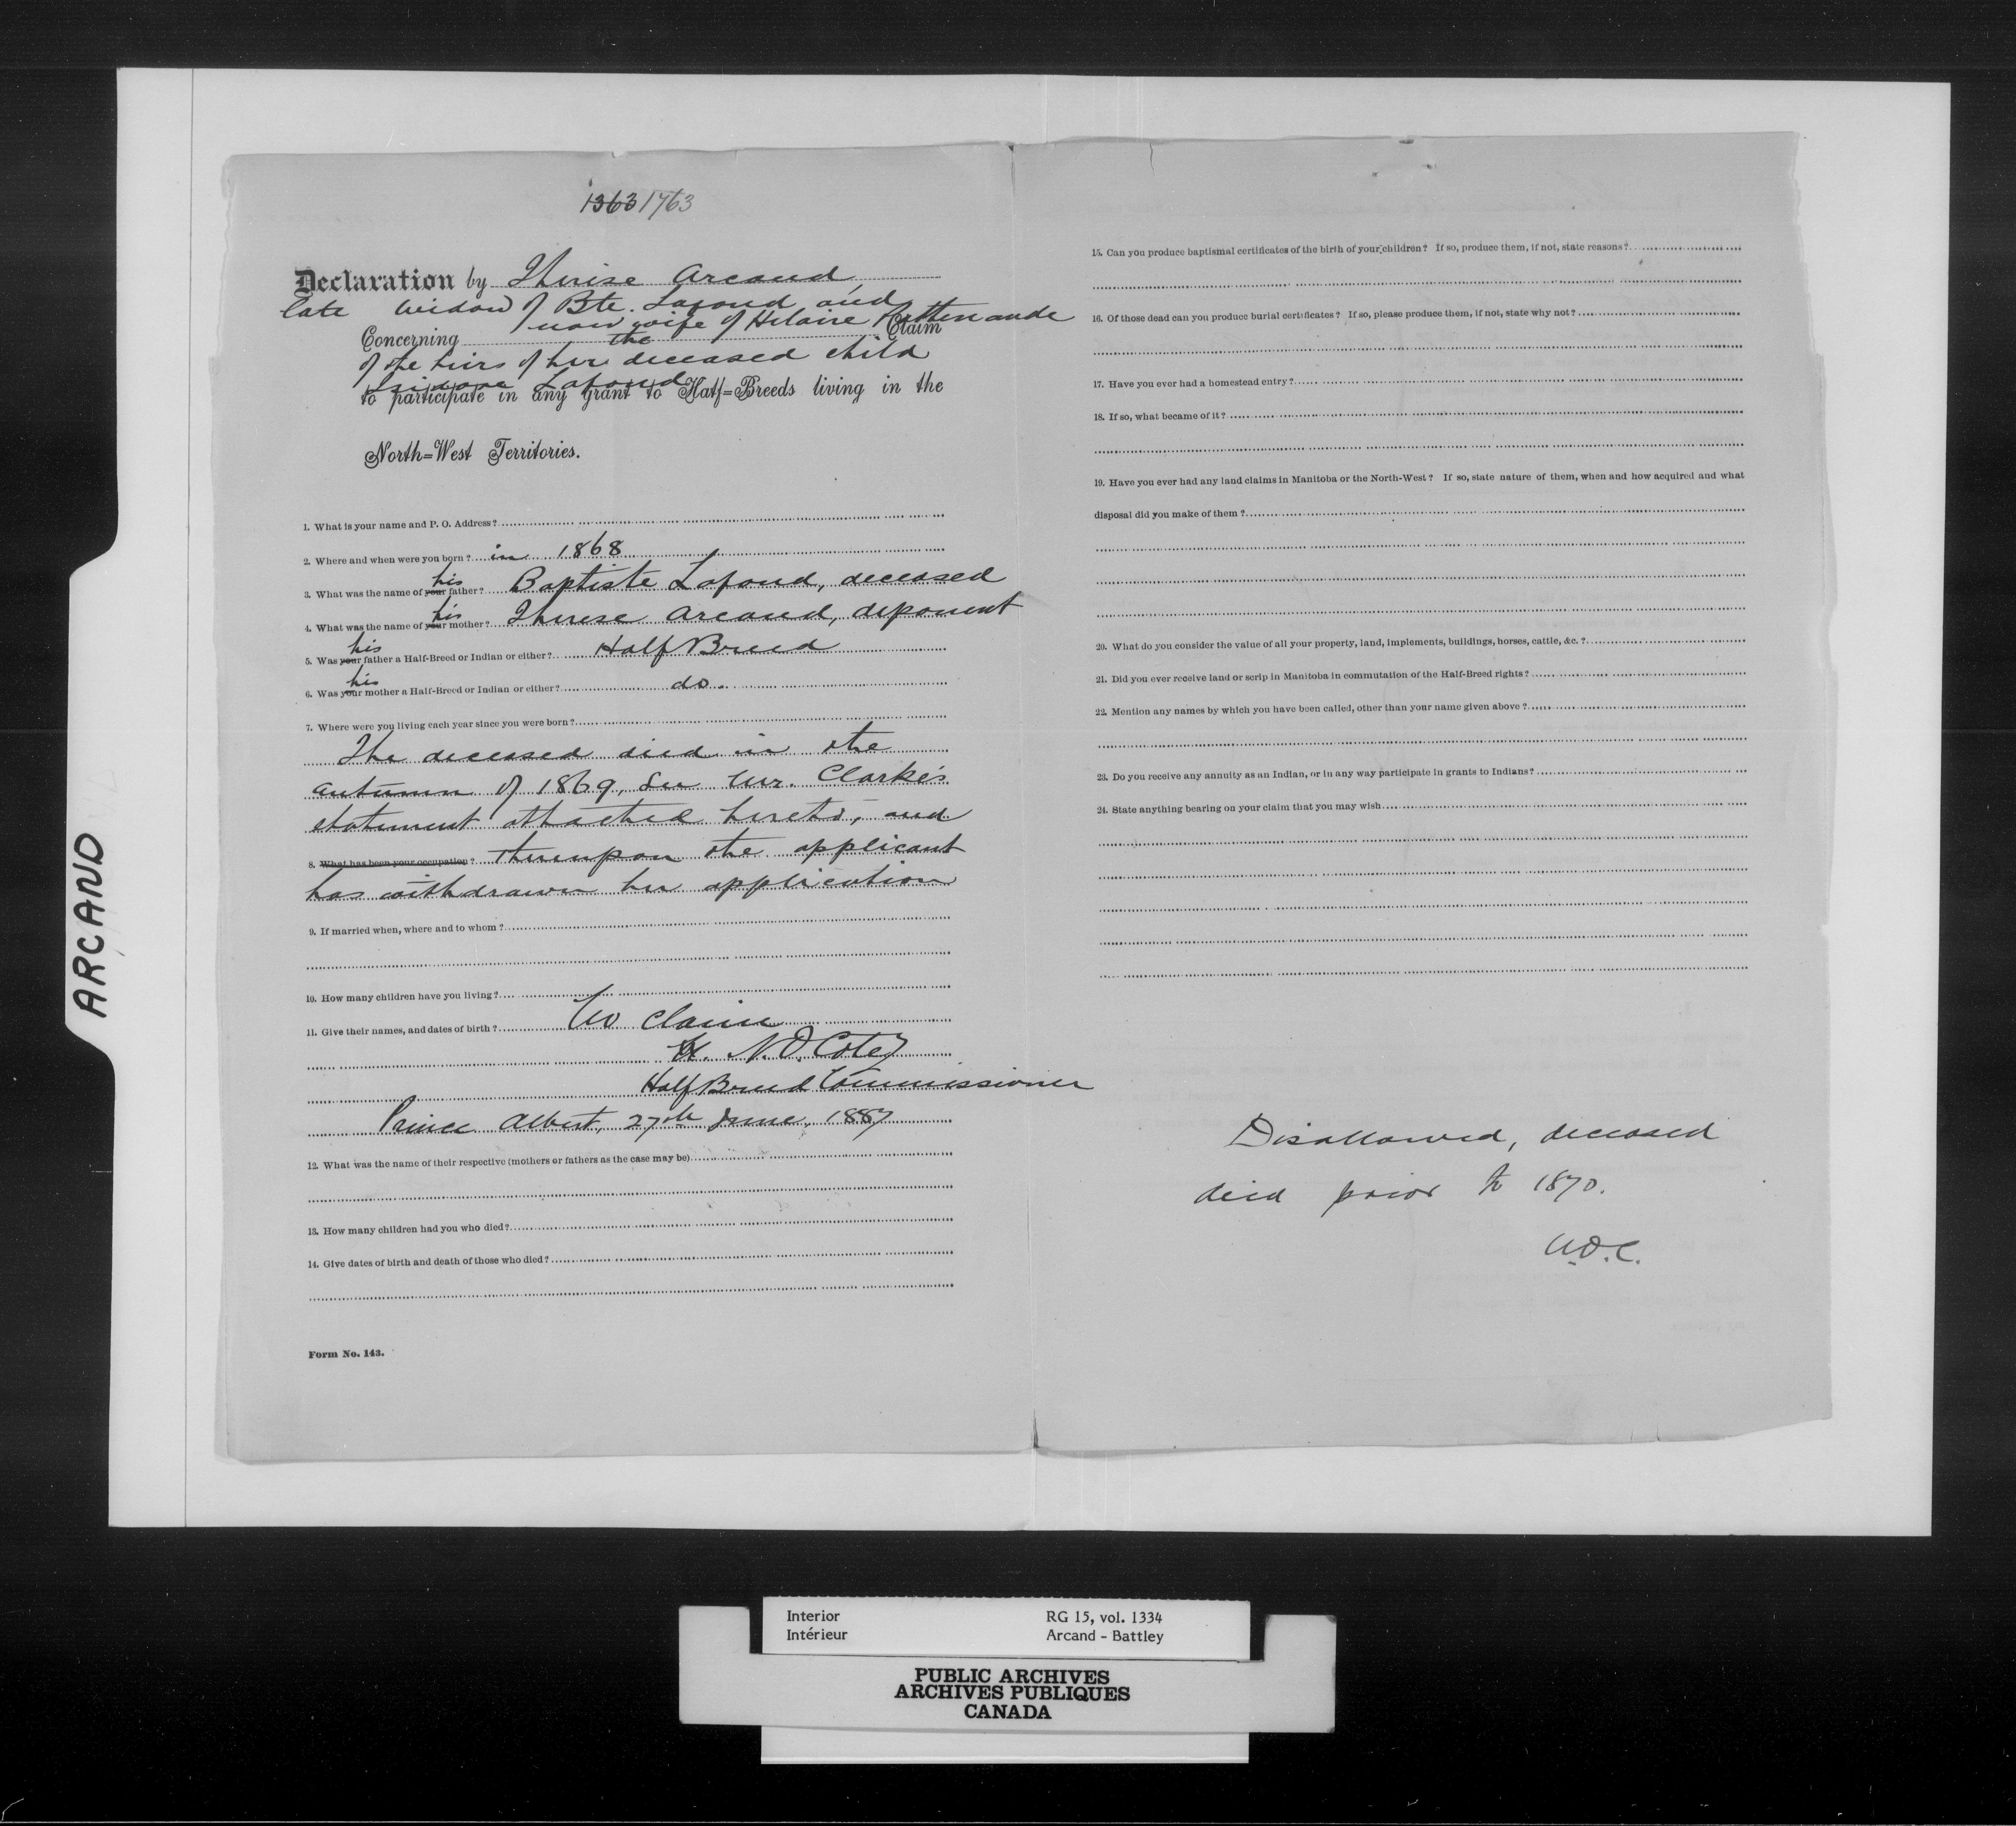 1363 1763
Declaration by Therese Arcand
late widow of Bte. Lafond and
now wife of Hilaire Pattenaude
Concerning the Claim
of the heirs of her deceased child
Isidore Lafond
to participate in any grant to Half=Breeds living in the
North=West Territories.
1. What is your name and P. O. Address?
2. Where and when were you born? in 1868
3. What was the name of your his father? Baptiste Lafond, deceased
4. What was the name of your his mother? Therese Arcand, deponent
5. Was your his father a Half-Breed or Indian or either? Half Breed
6. Was your his mother a Half-Breed or Indian or either? do.
7. Where were you living each year since you were born?
The deceased died in the
autumn of 1869, See Mr. Clarke's
statement attached hereto, and
8. What has been your occupation? thereupon the applicant
has withdrawn her application
9. If married when, where and to whom?
10. How many children have you living?
11. Give their names, and dates of birth? No claim
N.O. Coté
Half Breed Commissioner
Prince Albert, 27th June, 1887
12. What was the name of their respective (mothers or fathers as the case may be)
13. How many children had you who died?
14. Give dates of birth and death of those who died?
Form No. 143.
15. Can you produce baptismal certificates of the birth of your children? If so, produce them, if not, state reasons?
16. Of those dead can you produce burial certificates? If so, please produce them, if not, state why not?
17. Have you ever had a homestead entry?
18. If so, what became of it?
19. Have you ever had any land claims in Manitoba or the North-West? If so, state nature of them, when and how acquired and what
disposal did you make of them?
20. What do you consider the value of all your property, land, implements, buildings, horses, cattle, &c.?
21. Did you ever receive land or scrip in Manitoba in commutation of the Half-Breed rights?
22. Mention any names by which you have been called, other than your name given above?
23. Do you receive any annuity as an Indian, or in any way participate in grants to Indians?
24. State anything bearing on your claim that you may wish
Disallowed, deceased
died prior to 1870.
N.O.C.
ARCAND
Interior RG 15, vol. 1334
Intérieur Arcand - Battley
PUBLIC ARCHIVES
ARCHIVES PUBLIQUES
CANADA